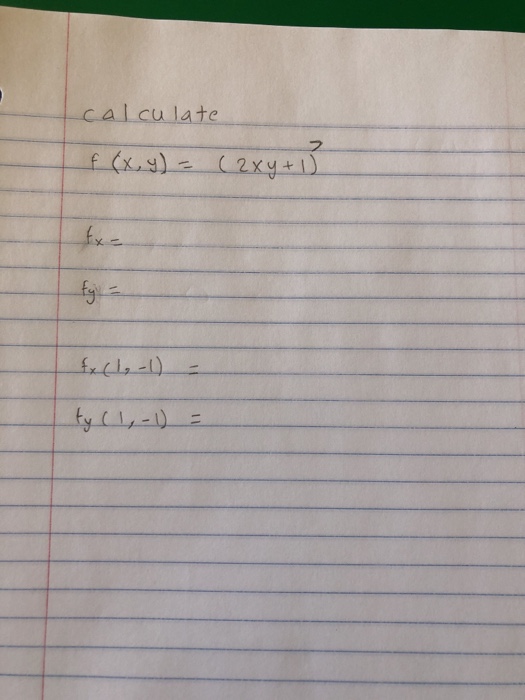 calculate
f(x,y) = (2xy+1)⁷
fx =
fy =
fx(1,-1) =
fy(1,-1) =